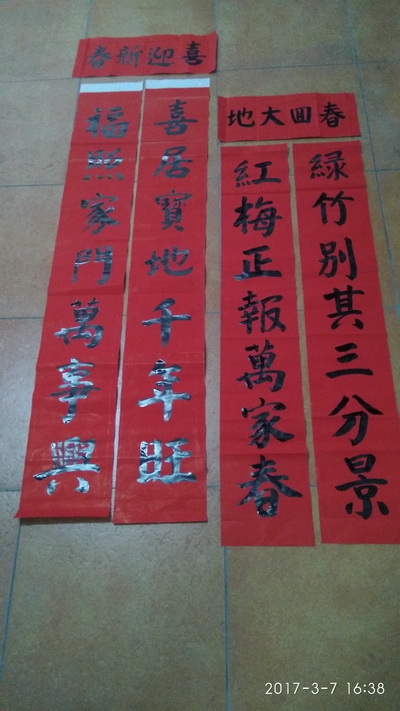 喜迎新春
喜居寶地千年旺
福照家門萬事興
春回大地
綠竹別其三分景
紅梅正報萬家春
2017-3-7 16:38